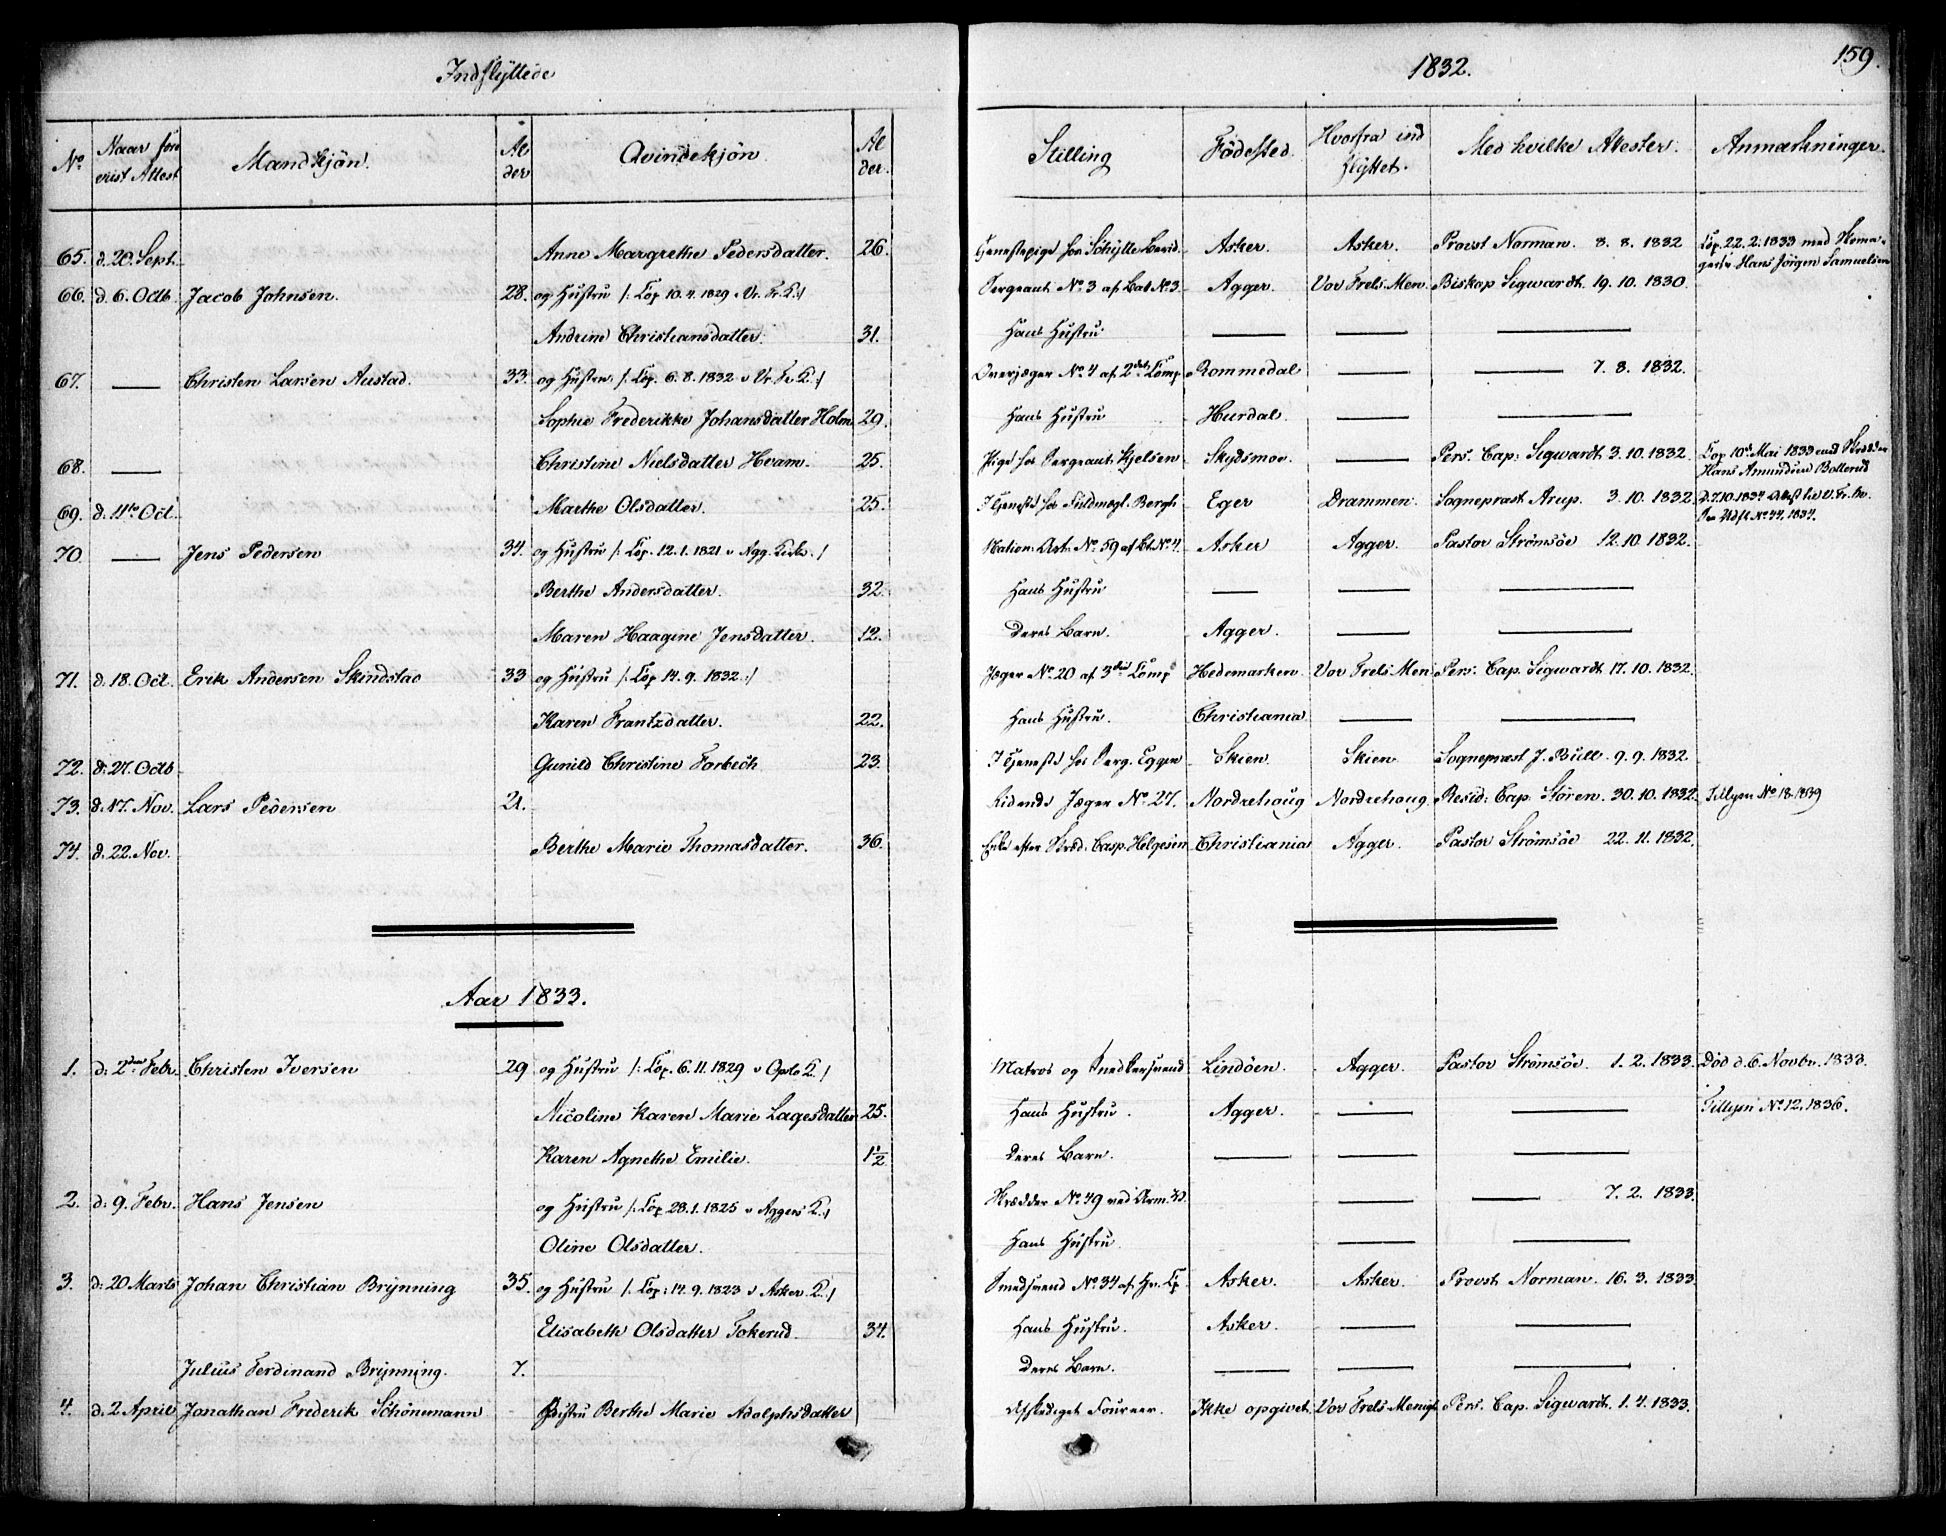 Indflyttede
1832.
159.
No
Naar fore
vist Attest
Mandkjøn.
Al
der
Qvindekjøn.
Al
der.
Stilling
Fødested.
Hvorfra ind
flyttet.
Med hvilke Attester.
Anmærkninger.
65. d. 20. Sept. Anne Margrethe Pedersdatter. 26. Tjenestepige hos Asker. Asker. Provst Norman. 3. 8. 1832 Cop. 22. 2. 1833 med
Hans Jørgen Samuelsen
66. d. 6. Octb Jacob Johnsen. 28. og Hustru /: Cop 10. 4. 1829 v Vr. Fr. K :/ Sergeant No 3 af Bat No 3. Agger. Vor Frels Men. Biskop Sigwardt. 19. 10. 1830.
Andrine Christiansdatter. 31. Hans Hustru. — — —
67. — Christen Larsen Austad. 33. og Hustru /: Cop. 6. 8. 1832 v Vr. Fr K :/ Overjæger No 4 af 2det Comp Rommedal — — 7. 8. 1832.
Sophie Frederikke Johansdatter Holm 29. Hans Hustru Hurdal. — —
68. — Christine Nielsdatter Hvam. 25. Pige hos Sergeant Kjelsen Skydsmoe. — Pers. Cap. Sigwardt. 3. 10. 1832. Cop 10de Mai 1833 med
Hans Amundsen Bollerud
69. d. 11te Oct. Marthe Olsdatter. 25. I Tjeneste hos Fuldmegt. Bergh Eger Drammen. Sognepræst Arup. 3. 10. 1832 D. 7. 10. 1834 Attest
No 44, 1834.
70. — Jens Pedersen 34. og Hustru /: Cop. 12. 1. 1821 v Agg. Kirke. :/ Nation: Art: No 59 af Bt. No 4. Asker Agger. Pastor Strømsøe 12. 10. 1832.
Berthe Andersdatter. 32. Hans Hustru — — —
Maren Haagine Jensdatter. 12. Deres Barn. Agger. — —
71. d. 18. Oct. Erik Andersen Skindstao 33 og Hustru /: Cop 14. 9. 1832 :/ Jæger No 20 af 3die Comp Hedemarken Vor Frels Men. Pers. Cap. Sigwardt 17. 10. 1832.
Karen Frantzdatter. 22. Hans Hustru. Christiania — —
72. d. 27. Octb Gunild Christine Forbech 23. I Tjeneste hos Serg. Eggen Skien Skien Sognepræst J. Bull. 9. 9. 1832.
73. d. 17. Nov. Lars Pedersen 21. Ridende Jæger No 27. Nordrehoug Nordrehoug Resid: Cap. Støren. 30. 10. 1832. Tillysn No 18. 1839
74. d. 22. Nov. Berthe Marie Thomasdatter. 36. Enke efter Casp. Helgesen Christiania Agger. Pastor Strømsøe 22. 11. 1832.
Aar 1833.
1. d. 2den Febr. Christen Iversen 29 og Hustru /: Cop. 6. 11. 1829 v Opslo K. :/ Matros og Snedkersvend Lindöen. Agger. Pastor Strømsøe. 1. 2. 1833. Død d. 6. Novbr. 1833.
Nicoline Karen Marie Lagesdatter 25. Hans Hustru. Agger. — — Tillysn No 12, 1836.
Karen Agnethe Emilie. 1½ Deres Barn. — — —
2. d. 9. Febr. Hans Jensen og Hustru /: Cop 28. 1. 1825 v Aggers K. :/ Skrædder No 49 ved — — 7. 2. 1833.
Oline Olsdatter. Hans Hustru. — —
3. d. 20 Marts Johan Christian Brynning 35. og Hustru /: Cop: 14. 9. 1823 v Asker K. :/ Smedsvend No 34 af Asker. Asker. Provst Norman. 16. 3. 1833.
Elisabeth Olsdatter Tokerud 34. Hans Hustru. Asker. — —
Julius Ferdinand Brynning. 7. Deres Barn. — — —
4. d. 2 April Jonathan Frederik Schönemann Hustru Berthe Marie Adolphsdatter Afskediget Fourier. Ikke opgivet. Vor Frels Menigh. Pers. Cap. Sigwardt. 1. 4. 1833.